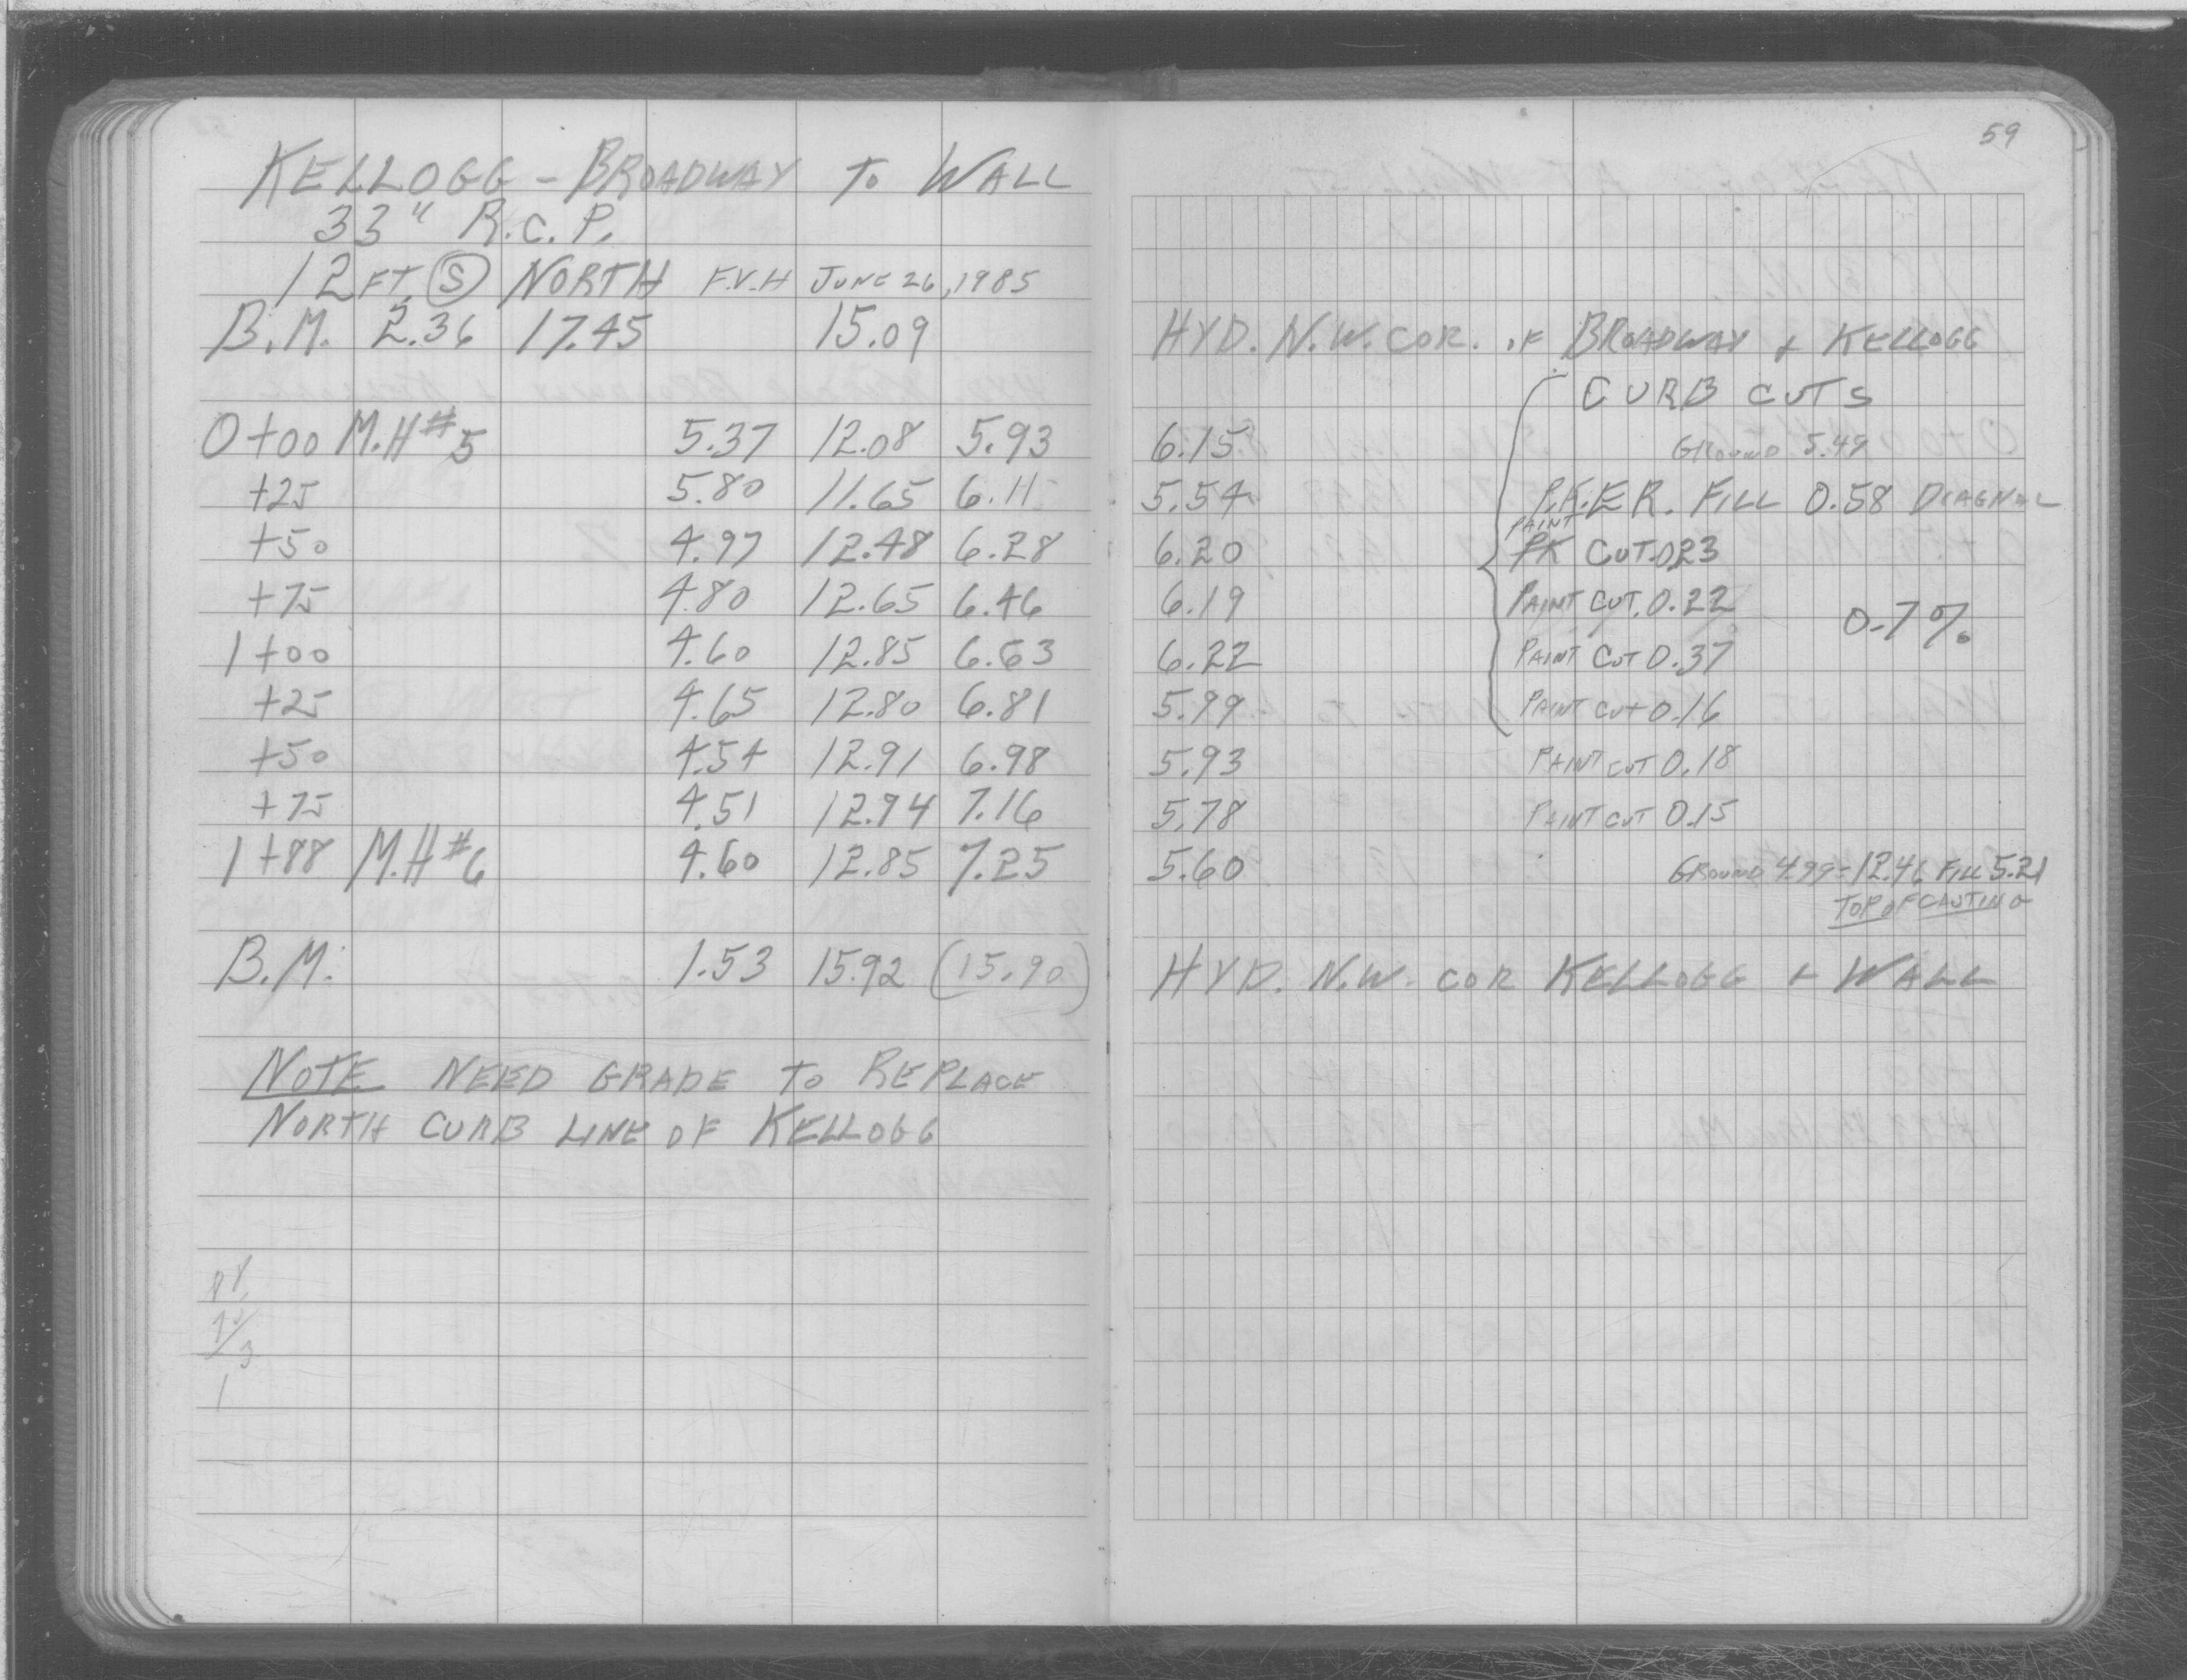 59
KELLOGG - BROADWAY TO WALL
33" R.C.P.
12 FT. (S) NORTH F.V.H JUNE 26, 1985
B.M. 2.36 17.45 15.09 HYD. N.W. COR. OF BROADWAY & KELLOGG
CURB CUTS
0+00 M.H #5 5.37 12.08 5.93 6.15 GROUND 5.49
+25 5.80 11.65 6.11 5.54 P.K.E.R. FILL 0.58 DIAGNAL
PAINT
+50 4.97 12.48 6.28 6.20 PK CUT 0.23
+75 4.80 12.65 6.46 6.19 PAINT CUT. 0.22 0.7%
1+00 4.60 12.85 6.63 6.22 PAINT CUT 0.37
+25 4.65 12.80 6.81 5.99 PAINT CUT 0.16
+50 4.54 12.91 6.98 5.93 PAINT CUT 0.18
+75 4.51 12.94 7.16 5.78 PAINT CUT 0.15
1+88 M.H #6 4.60 12.85 7.25 5.60 GROUND 4.99=12.46 FILL 5.21
TOP OF CASTING
B.M. 1.53 15.92 (15.90) HYD. N.W. COR KELLOGG & WALL
NOTE NEED GRADE TO REPLACE
NORTH CURB LINE OF KELLOGG